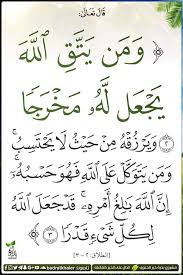 قَالَ تَعَالَىٰ:
﴿ وَمَن يَتَّقِ ٱللَّهَ
يَجْعَل لَّهُۥ مَخْرَجًا
٢ وَيَرْزُقْهُ مِنْ حَيْثُ لَا يَحْتَسِبُ ۚ
وَمَن يَتَوَكَّلْ عَلَى ٱللَّهِ فَهُوَ حَسْبُهُۥٓ ۚ
إِنَّ ٱللَّهَ بَٰلِغُ أَمْرِهِۦ ۚ قَدْ جَعَلَ ٱللَّهُ
لِكُلِّ شَىْءٍ قَدْرًا ٣ ﴾
[الطلاق: ٢ - ٣]